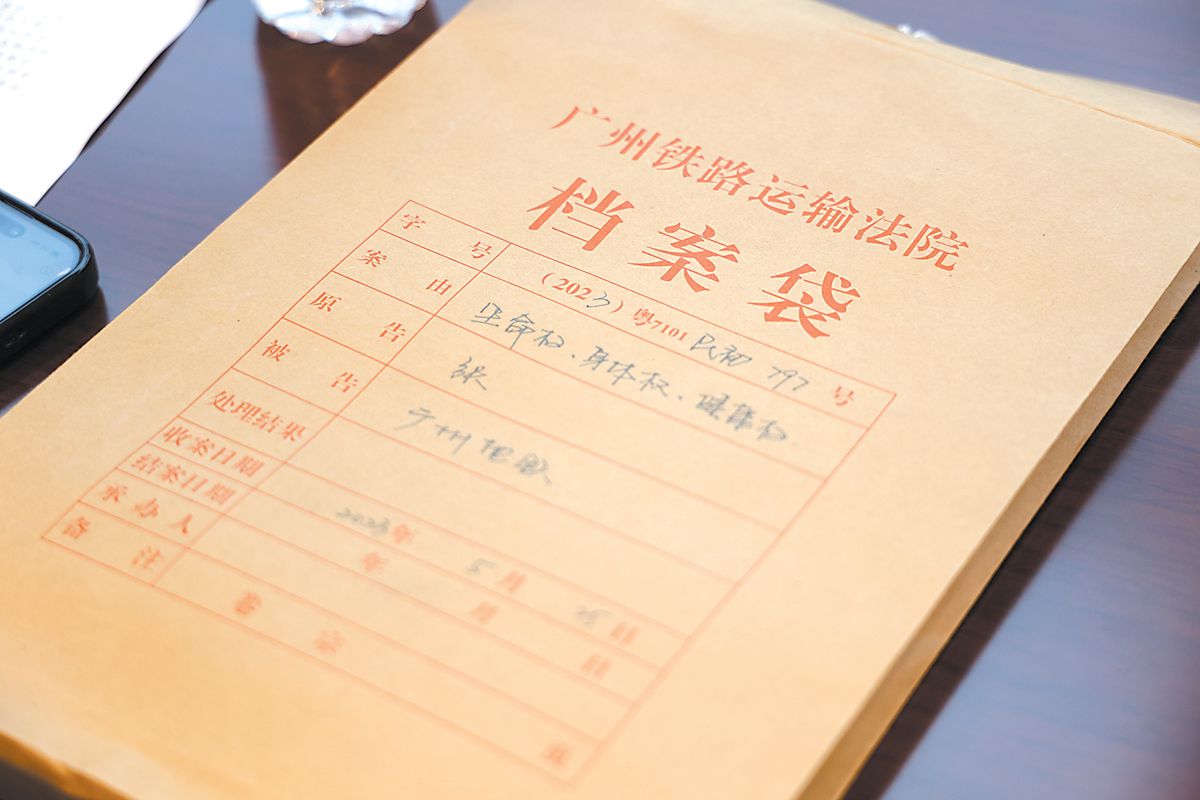 广州铁路运输法院
档案袋
字号 (2023)粤7101民初797号
案由 生命权、身体权、健康权
原告 张
被告 广州地铁
处理结果
收案日期 2023年5月25日
结案日期 年月日
承办人
备注 卷宗 页